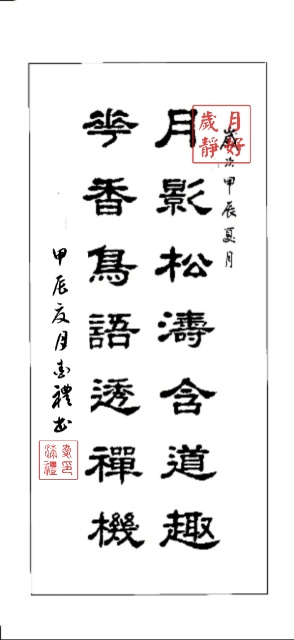 月好
歲靜
歲次甲辰夏月
月影松濤含道趣
花香鳥語透禪機
甲辰夏月禮书